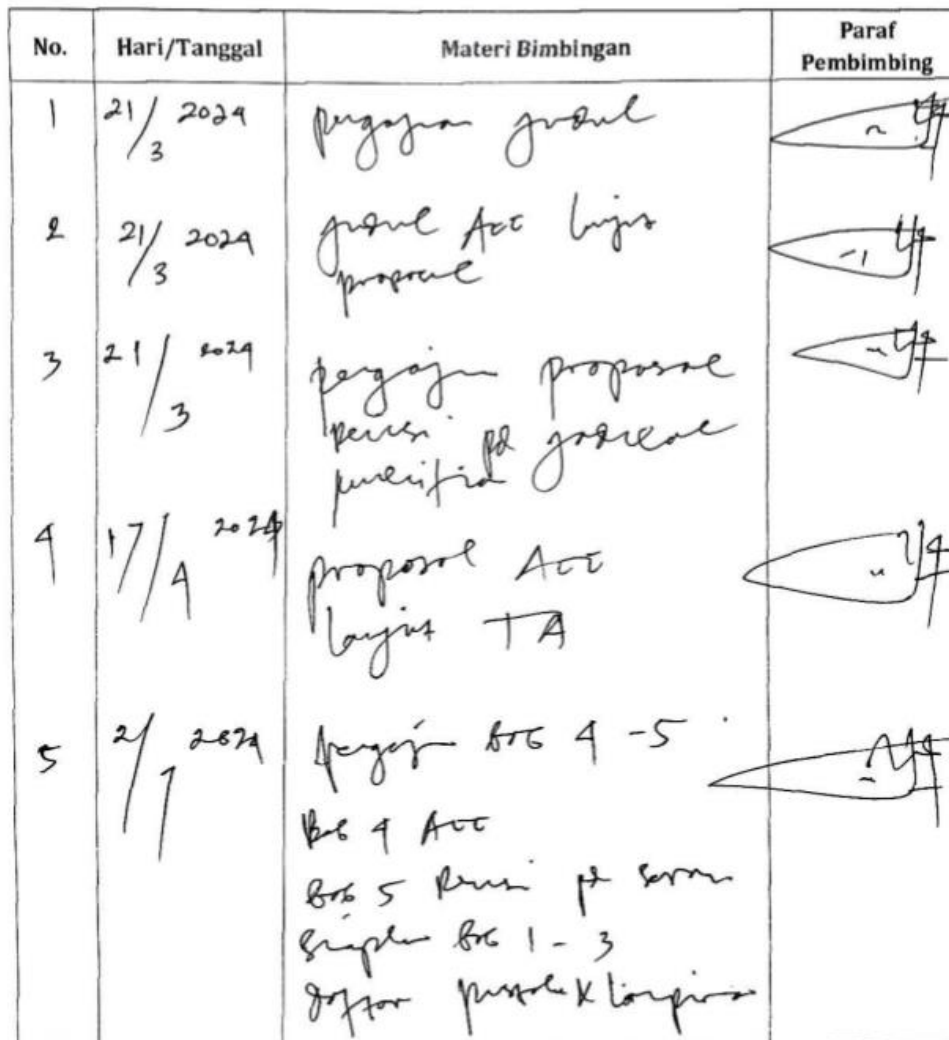 No. Hari/Tanggal Materi Bimbingan Paraf Pembimbing
1 21/3 2024 pengajuan judul
2 21/3 2024 judul Acc lanjut
proposal
3 21/3 2024 pengajuan proposal
revisi pd
4 17/4 2024 proposal Acc
lanjut TA
5 2/7 2024 pengajuan Bab 4 - 5
Bab 4 Acc
Bab 5 Revisi pd saran
Siapkan Bab 1 - 3
daftar pustaka & lampiran